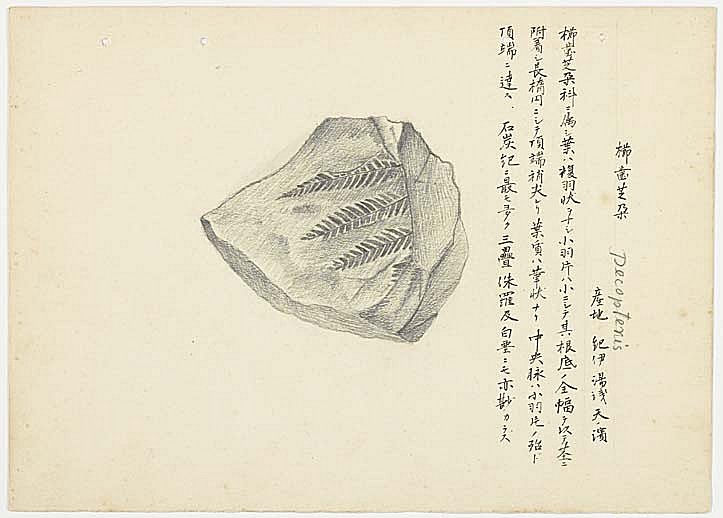 櫛歯芝朶 Pecopteris
産地 紀伊湯浅天ノ濱
櫛歯芝朶科ニ属シ葉ハ複羽状ヲナシ小羽片ハ小ニシテ其根底ノ全幅ヲ以テ本ニ
附着シ長楕円ニシテ頂端稍尖レリ葉質ハ革状ナリ中央脉ハ小羽片ノ殆ド
頂端ニ達ス、石炭紀ニ最モ多ク三疊侏羅及白堊ニモ亦尠カラズ